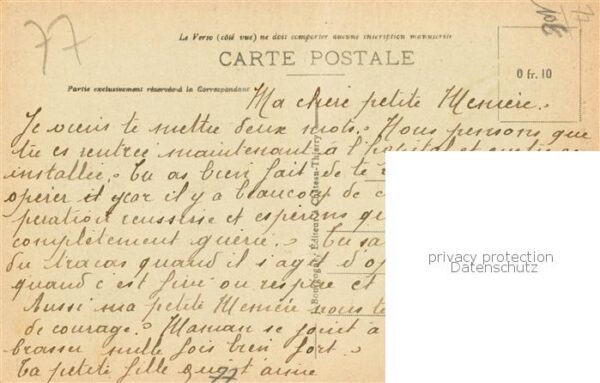 77
Le Verso (côté vue) ne doit comporter aucune inscription manuscrite
CARTE POSTALE
0 fr. 10
Partie exclusivement réservée à la Correspondance
Ma chère petite Memère.
Je viens te mettre deux mots. Nous pensons que
tu es rentrée maintenant à l'hôpital et
installée. Tu as bien fait de te
opérer il y car il y a beaucoup de
peration reussisse et espérons
complètement guérie. Tu
du tracas quand il s'agit
quand c est fini on respire et
Aussi ma petite Memère
de courage. Maman se joint à
brasser mille fois bien fort.
Ta petite fille qui t'aime
77
Bourgogne, Éditeur, Château-Thierry
privacy protection
Datenschutz